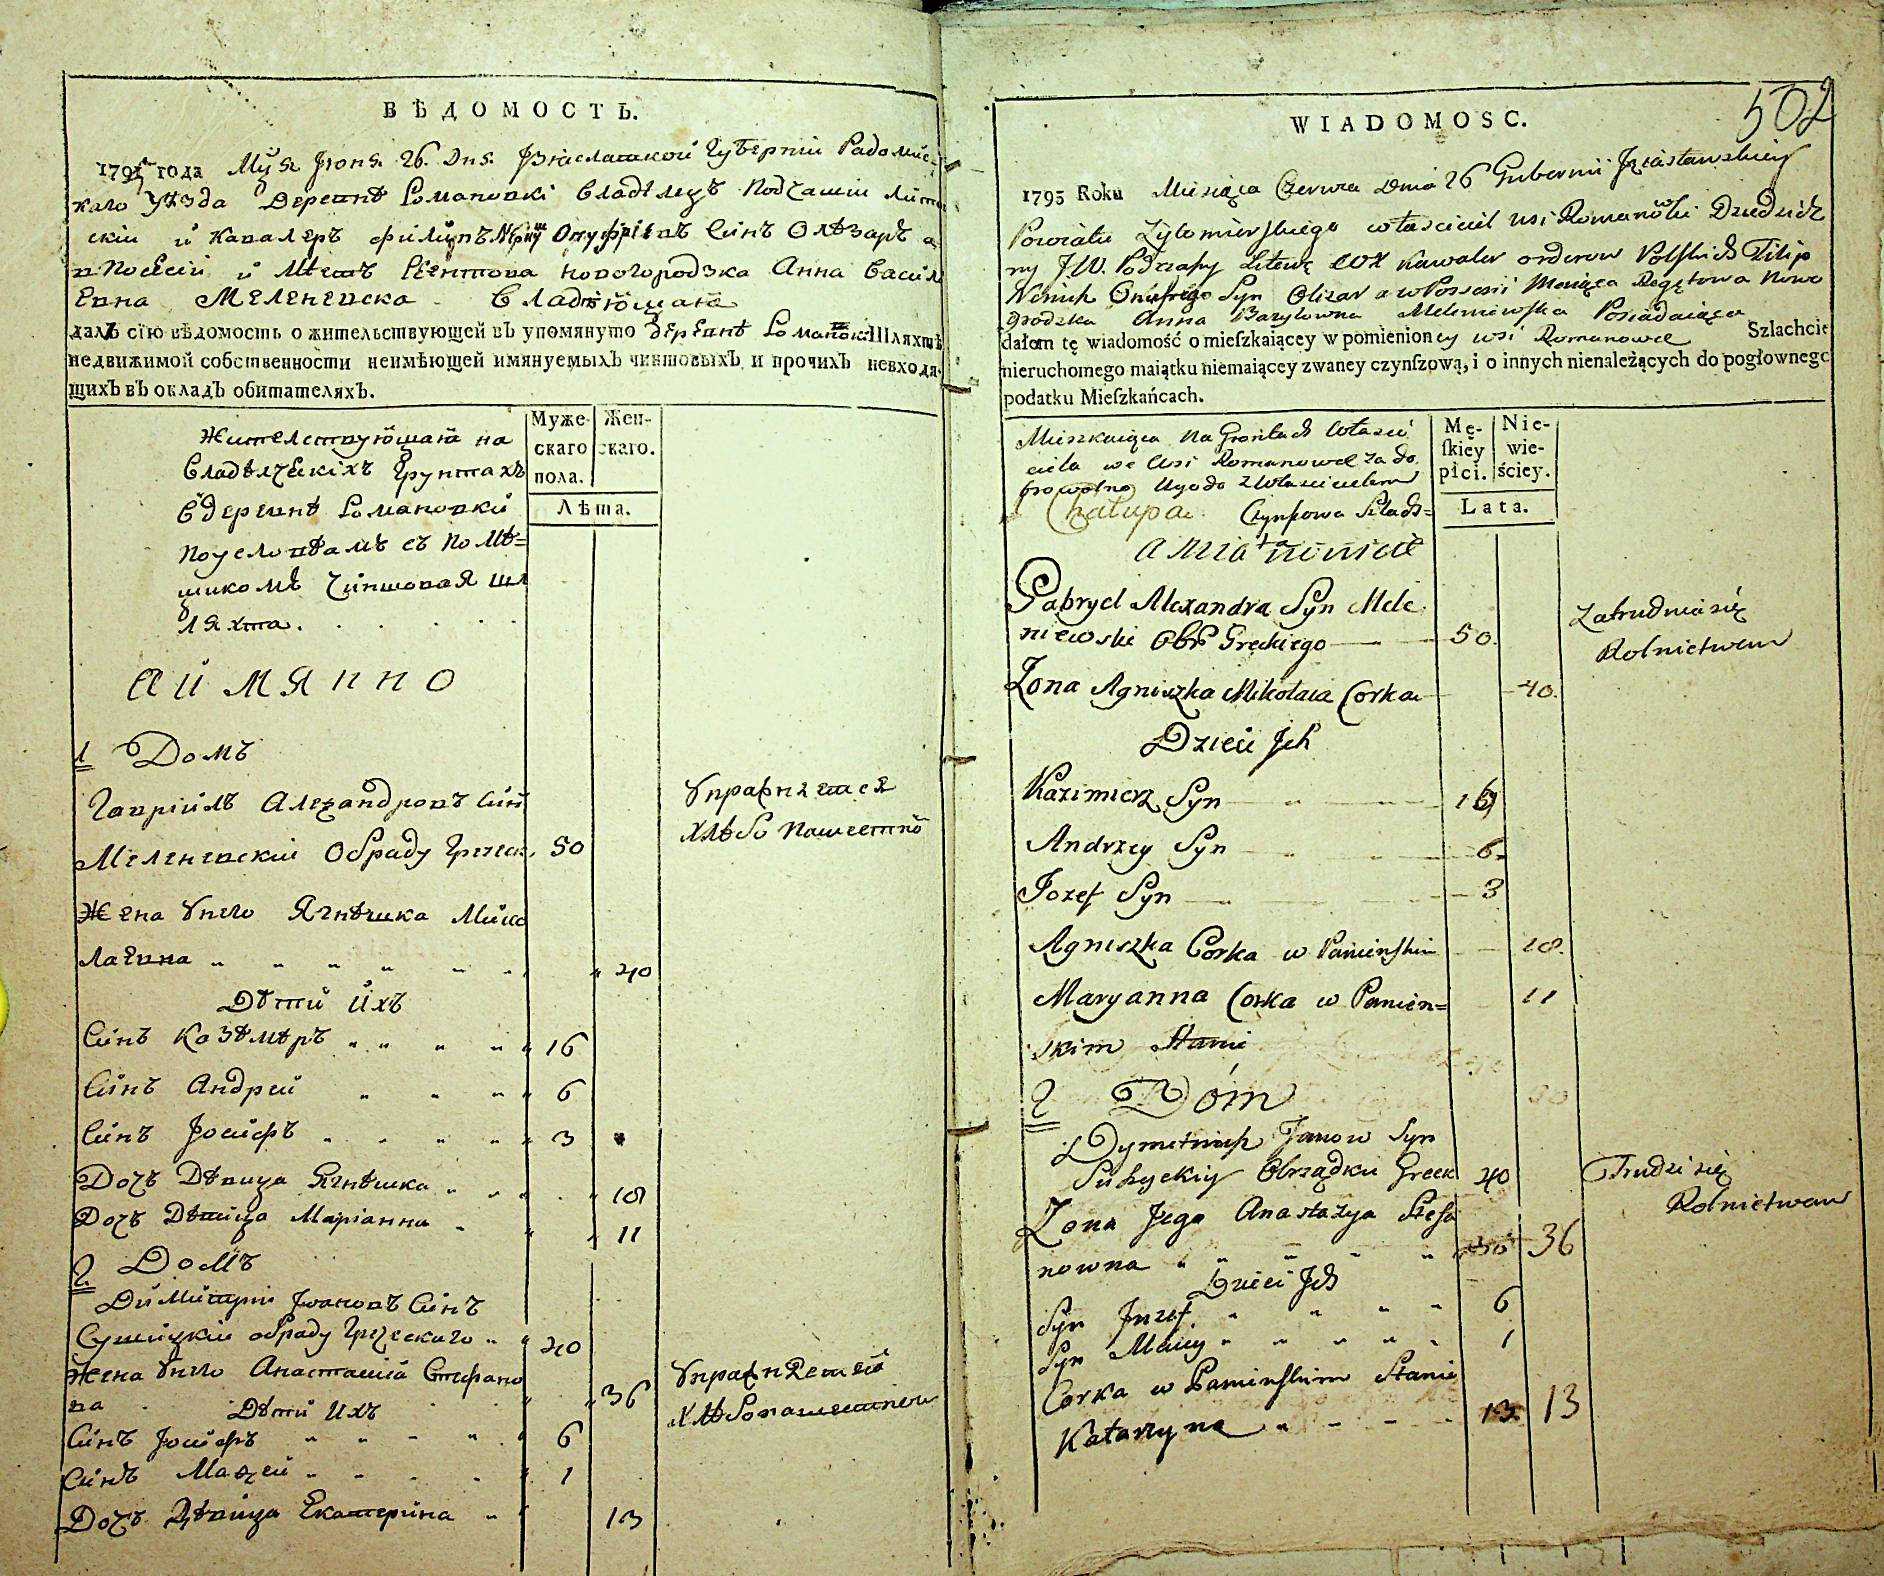 ВѢДОМОСТЬ.
1795 года Мця Іюня 26. Дня. Ізяславской Губерніи Радомис
каго Уѣзда Деревнѣ Романовки Владѣлецъ Подчаши Лито
скіи и Кавалеръ Филипъ Онуфріевъ Синъ Олѣзаръ а
в Посесіи и Мѣстъ Реентова Новогородзка Анна Васил
евна Меленевска Владѣющая
далъ сїю вѣдомость о жительствующей въ упомянуто Деревнѣ Романовки Шляхтѣ
недвижимой собственности неимѣющей имянуемыхъ чиншовыхъ и прочихъ невходя-
щихъ въ окладъ обитателяхъ.
Муже-
скаго
пола.
Жен-
скаго.
Лѣта.
Жителствующая на
Владѣлческихъ Грунтахъ
в Деревнѣ Романовки
по условѣамъ съ помѣ=
щикомъ Чиншовая шл
яхта.
а имянно
1 Домъ
Гавріилъ Александровъ Син
Меленевскіи Обряду Греческ. 50
Упражняется
Хлѣбопашествo
Жена Унего Ягнѣшка Мико
лаевна 40
Дѣти Ихъ
Синъ Казѣмѣръ 16
Синъ Андрей 6
Синъ Іосифъ 3
Дочъ Дѣвица Ягнѣшка 18
Дочъ Дѣвица Маріанна 11
2 Домъ
Димитрій Івановъ Синъ
Сушицкіи обряду Греческаго 40
Жена Унего Анастасія Стефано
ва 36
Упражняется
Хлѣбопашеством
Дѣти Ихъ
Синъ Іосифъ 6
Синъ Мацей 1
Дочъ Дѣвица Екатерина 13
502
WIADOMOSC.
1795 Roku Miesiąca Czerwca Dnia 26 Gubernii Jzasławskiey
Powiatu Zytomierskiego własciciel wsi Romanówki Dziedzicz
ny JW. Podczaszy Litews Kawaler orderow Polskich Filip
Onufrego Syn Olizar a w Possessii Moniąca Regętowa Nowo
grodzka Anna Bazylowna Meleniewska Posiadaiąca
dałam tę wiadomość o mieſzkaiącey w pomienioney wsi Romanowce Szlachcie
nieruchomego maiątku niemaiącey zwaney czynſzową, i o innych nienależących do pogłownego
podatku Mieſzkańcach.
Mę-
ſkiey
płci.
Nie-
wie-
ściey.
Lata.
Mieszkaiąca Na Grontach Własci
ciela we Wsi Romanowce za do
browolno Ugodo z Własicielem
Chałupa Czynszowa Szlach=
ta
a Mianowicie
Gabryel Alexandra Syn Mele
niewski Obr Greckiego 50.
Zatrudnia się
Rolnictwem
Zona Agniszka Mikołaia Corka 40.
Dzieci Jch
Kazimierz Syn 16
Andrzey Syn 6
Jozef Syn 3
Agniszka Corka w Panienskim 18.
Maryanna Corka w Panien=
skim Stanie 11
2 Dóm
Dymetriusz Janow Syn
Suszyckiy Obrządku Greck 40
Trudzi się
Rolnictwem
Zona Jego Anastazya Stefa
nowna 36
Dzieci Jch
Syn Jozef 6
Syn Maciey 1
Corka w Panienskim Stanie
Katarzyna 13 13